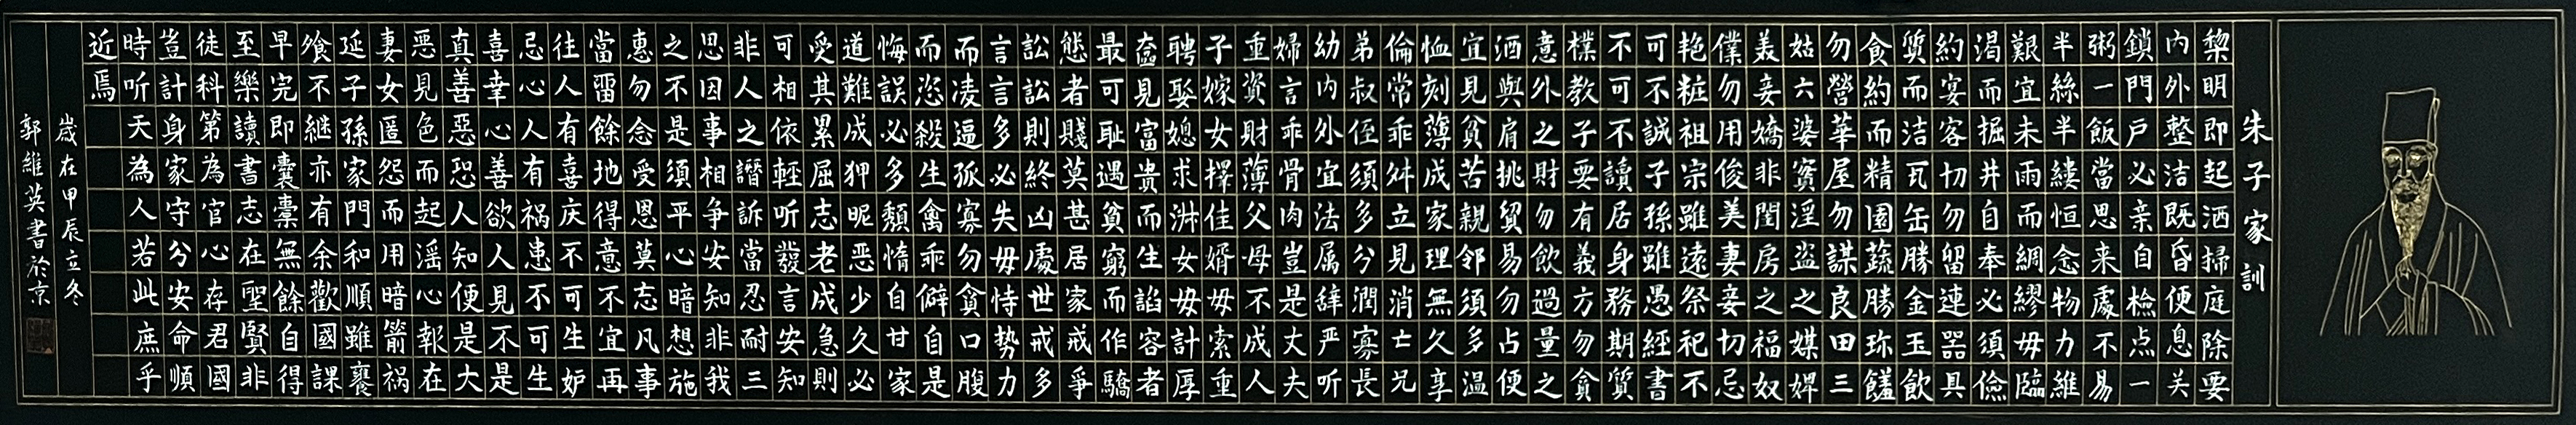 朱子家訓
黎明即起洒掃庭除要
内外整洁既昏便息关
鎖門户必亲自檢点一
粥一飯當思来處不易
半絲半縷恒念物力維
艱宜未雨而綢繆毋臨
渴而掘井自奉必須儉
約宴客切勿留連器具
質而洁瓦缶勝金玉飲
食約而精園蔬勝珎饈
勿營華屋勿謀良田三
姑六婆實淫盗之媒婢
美妾嬌非閨房之福奴
僕勿用俊美妻妾切忌
艳粧祖宗雖遠祭祀不
可不誠子孫雖愚經書
不可不讀居身務期質
樸教子要有義方勿貪
意外之財勿飲過量之
酒與肩挑貿易勿占便
宜見貧苦親邻須多温
恤刻薄成家理無久享
倫常乖舛立見消亡兄
弟叔侄須多分潤寡長
幼内外宜法属辞严听
婦言乖骨肉豈是丈夫
重資財薄父母不成人
子嫁女擇佳婿毋索重
聘娶媳求淋女毋計厚
奩見富貴而生諂容者
最可耻遇貧窮而作驕
態者賤莫甚居家戒爭
訟訟則終凶處世戒多
言言多必失毋恃势力
而凌逼孤寡勿貪口腹
而恣殺生禽乖僻自是
悔誤必多頹惰自甘家
道難成狎昵惡少久必
愛其累屈志老成急則
可相依輕听發言安知
非人之譖訴當忍耐三
思因事相争安知非我
之不是須平心暗想施
惠勿念受恩莫忘凡事
當留餘地得意不宜再
往人有喜庆不可生妒
忌心人有祸患不可生
喜幸心善欲人見不是
真善惡恐人知便是大
惡見色而起滛心報在
妻女匿怨而用暗箭祸
延子孫家門和順雖饔
飱不継亦有余歡國課
早完即囊橐無餘自得
至樂讀書志在聖賢非
徒科第為官心存君國
豈計身家守分安命順
時听天為人若此庶乎
近焉
歲在甲辰立冬
郭維英書於京